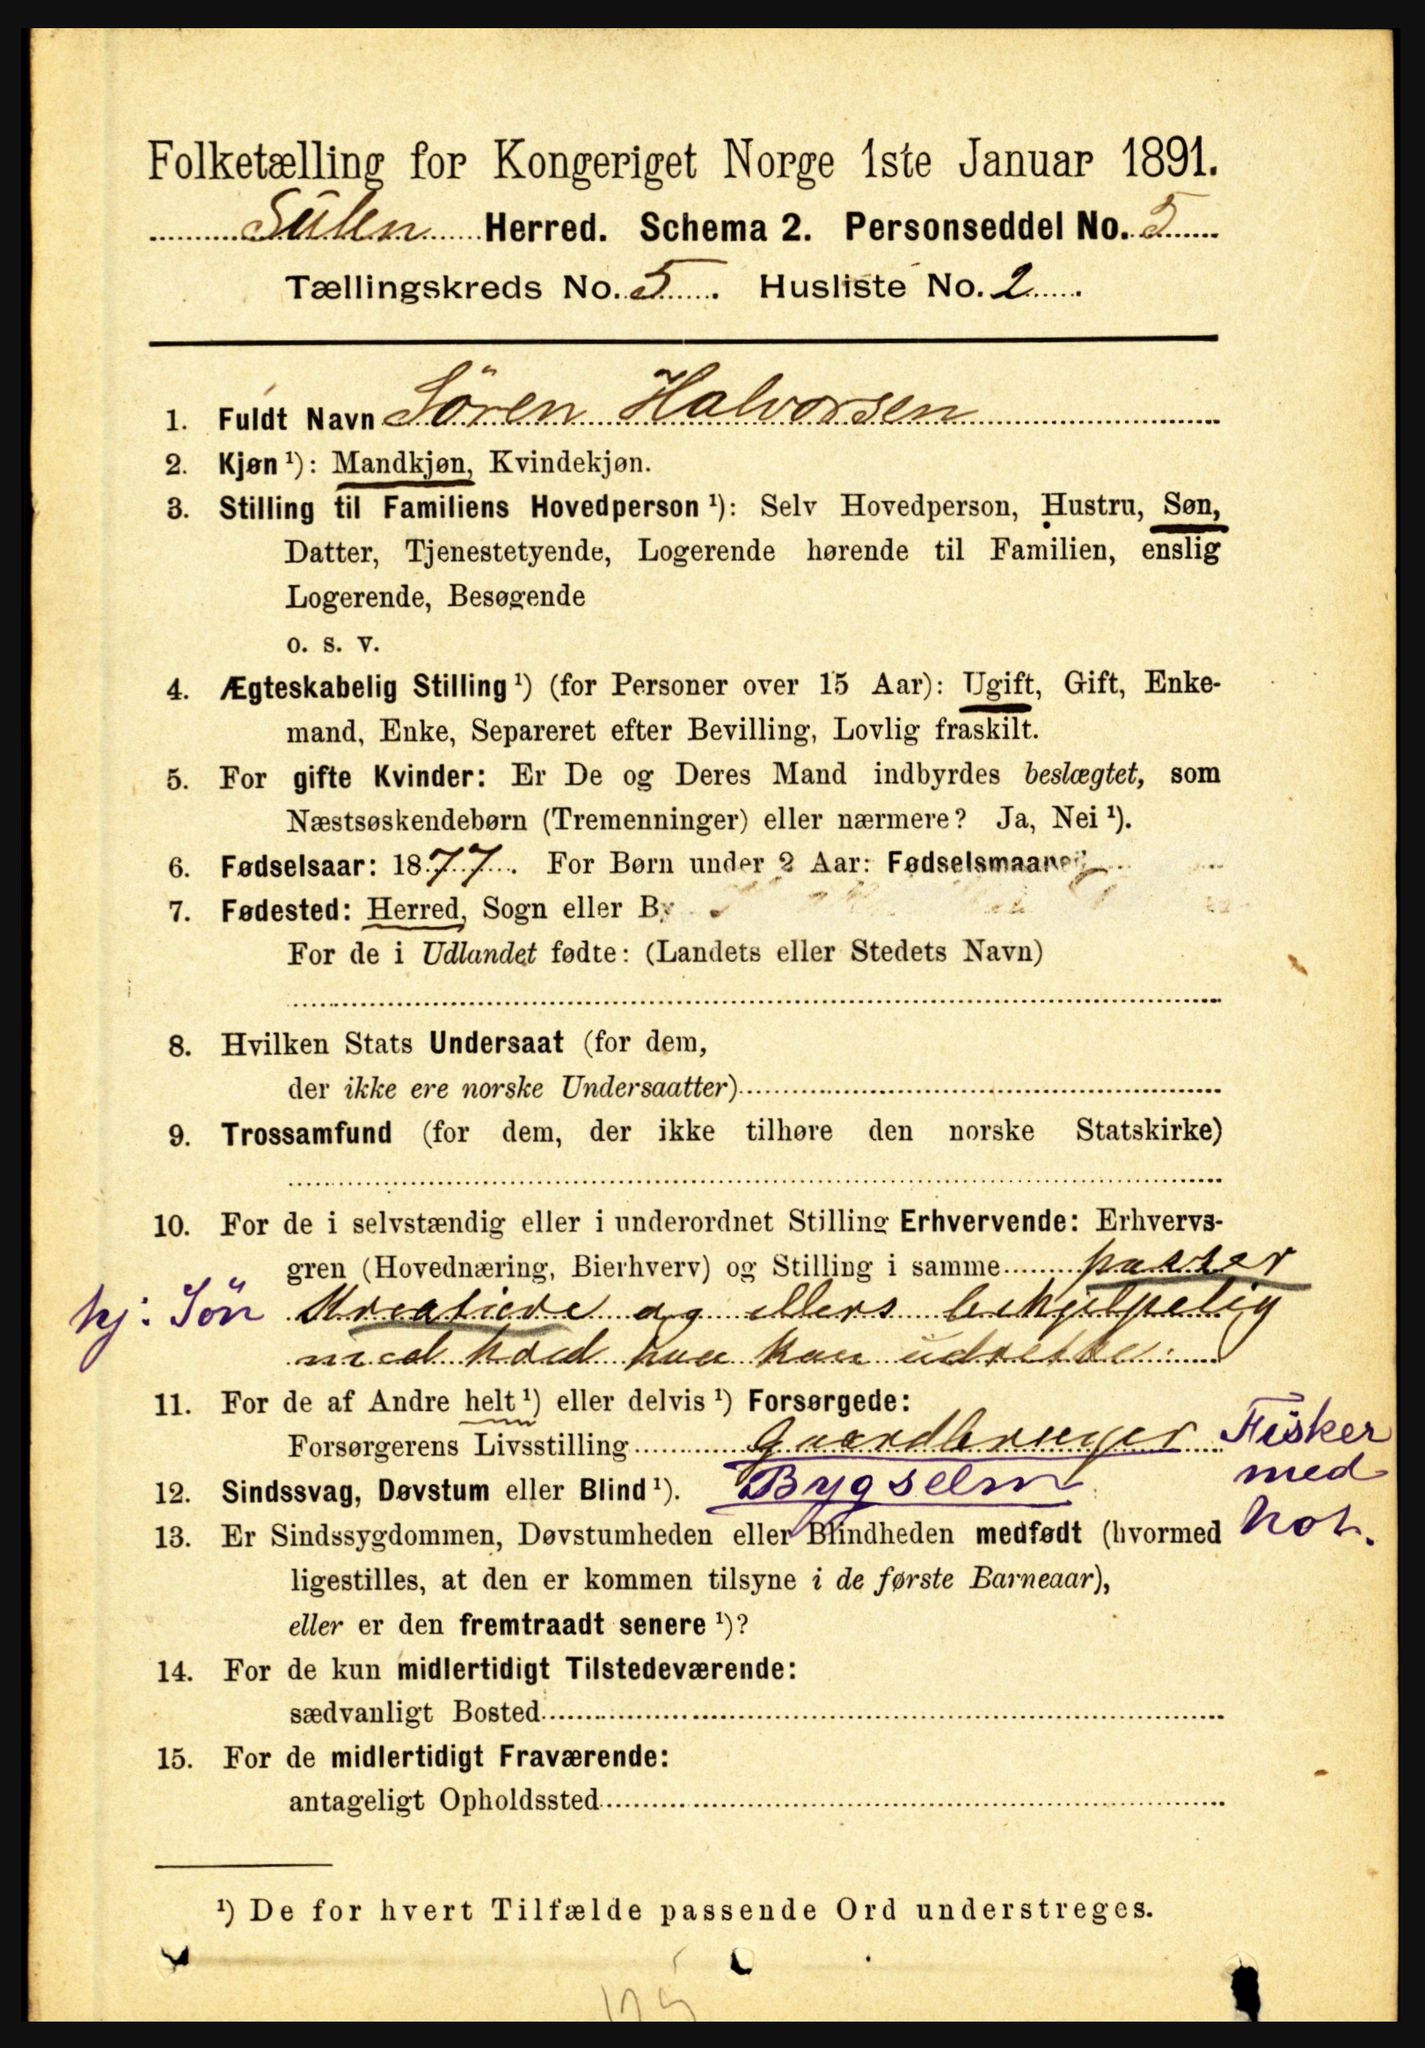 Folketælling for Kongeriget Norge 1ste Januar 1891.
Sulen Herred. Schema 2. Personseddel No. 5
Tællingskreds No. 5. Husliste No. 2.
1. Fuldt Navn Sören Halvorsen
2. Kjøn ¹): Mandkjøn, Kvindekjøn.
3. Stilling til Familiens Hovedperson ¹): Selv Hovedperson, Hustru, Søn,
Datter, Tjenestetyende, Logerende hørende til Familien, enslig
Logerende, Besøgende
o. s. v.
4. Ægteskabelig Stilling ¹) (for Personer over 15 Aar): Ugift, Gift, Enke-
mand, Enke, Separeret efter Bevilling, Lovlig fraskilt.
5. For gifte Kvinder: Er De og Deres Mand indbyrdes beslægtet, som
Næstsøskendebørn (Tremenninger) eller nærmere? Ja, Nei ¹).
6. Fødselsaar: 1877. For Børn under 2 Aar: Fødselsmaaned
7. Fødested: Herred, Sogn eller By
For de i Udlandet fødte: (Landets eller Stedets Navn)
8. Hvilken Stats Undersaat (for dem,
der ikke ere norske Undersaatter)
9. Trossamfund (for dem, der ikke tilhøre den norske Statskirke)
10. For de i selvstændig eller i underordnet Stilling Erhvervende: Erhvervs-
gren (Hovednæring, Bierhverv) og Stilling i samme passer
hj: Sön Kreatiere og ellers behjelpelig
med hvad han kan udrette.
11. For de af Andre helt ¹) eller delvis ¹) Forsørgede:
Forsørgerens Livsstilling Gaardbruger Fisker
12. Sindssvag, Døvstum eller Blind ¹). Bygselm med
13. Er Sindssygdommen, Døvstumheden eller Blindheden medfødt (hvormed not.
ligestilles, at den er kommen tilsyne i de første Barneaar),
eller er den fremtraadt senere ¹)?
14. For de kun midlertidigt Tilstedeværende:
sædvanligt Bosted
15. For de midlertidigt Fraværende:
antageligt Opholdssted
¹) De for hvert Tilfælde passende Ord understreges.